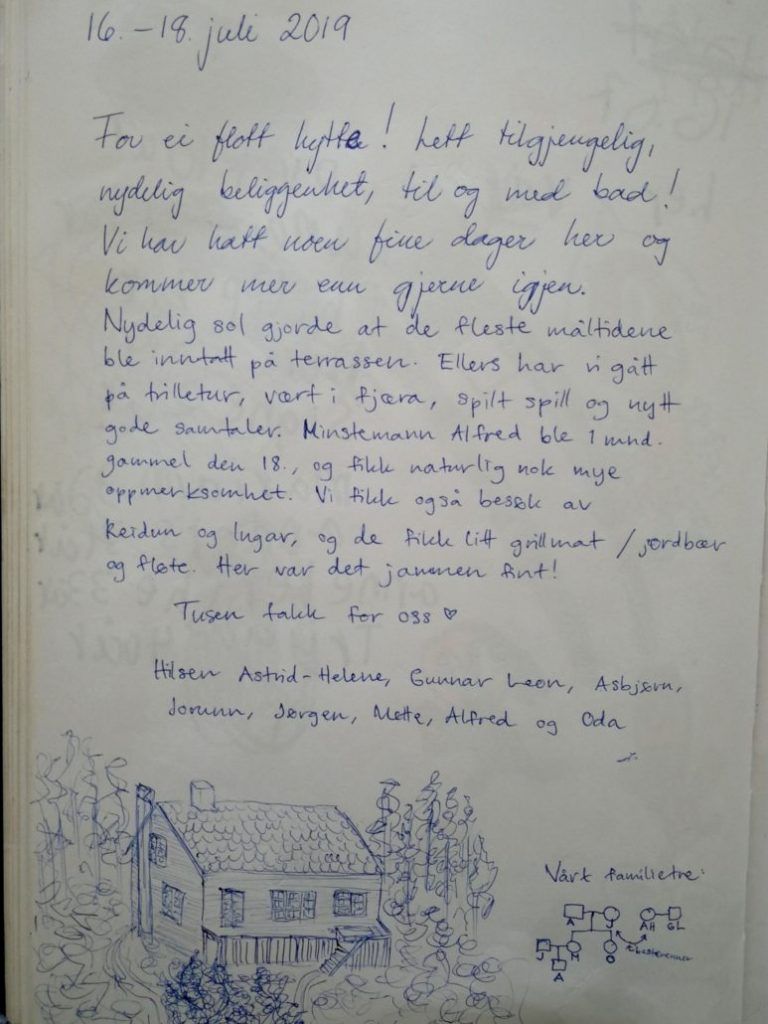 16.-18. juli 2019
For ei flott hytte! Lett tilgjengelig,
nydelig beliggenhet, til og med bad!
Vi har hatt noen fine dager her og
kommer mer enn gjerne igjen.
Nydelig sol gjorde at de fleste måltidene
ble inntatt på terrassen. Ellers har vi gått
på trilletur, vært i fjæra, spilt spill og nytt
gode samtaler. Minstemann Alfred ble 1 mnd.
gammel den 18., og fikk naturlig nok mye
oppmerksomhet. Vi fikk også besøk av
Reidun og Ingar, og de fikk litt grillmat / jordbær
og fløte. Her var det jammen fint!
Tusen takk for oss ♡
Hilsen Astrid-Helene, Gunnar Leon, Asbjørn,
Jorunn, Jørgen, Mette, Alfred og Oda
Vårt familietre:
A J AH GL
J M O
A